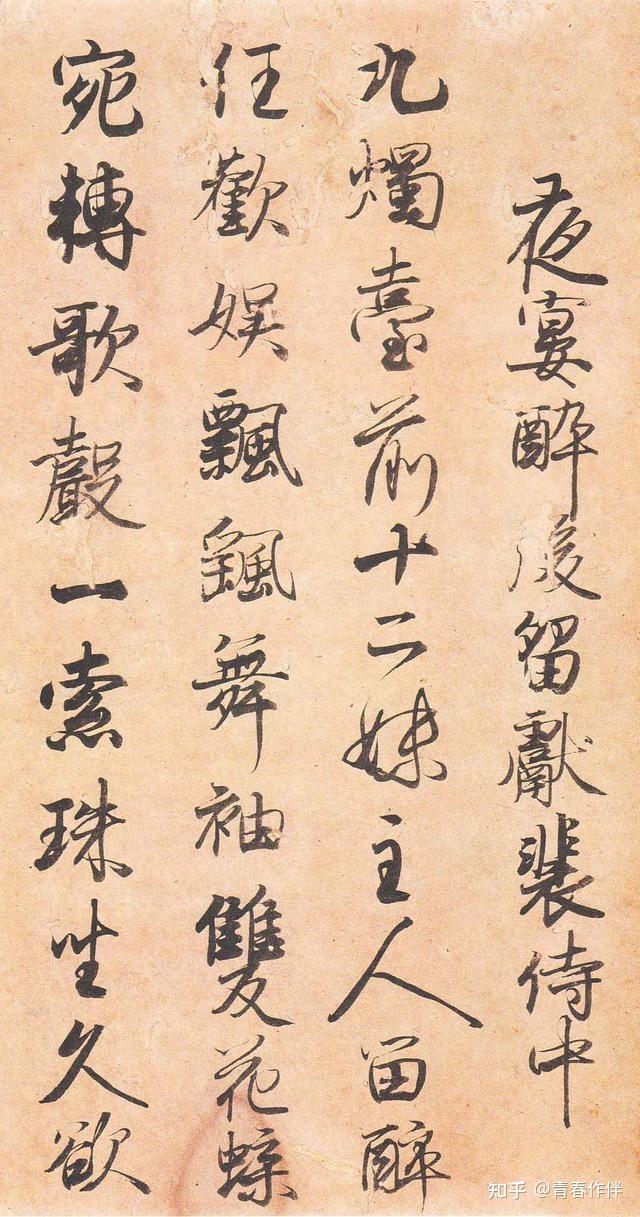 夜宴醉後留獻裴侍中
九燭臺前十二妹主人留醉
任歡娱飄颻舞袖雙花蝶
宛轉歌聲一索珠坐久欲
知乎 @青春作伴